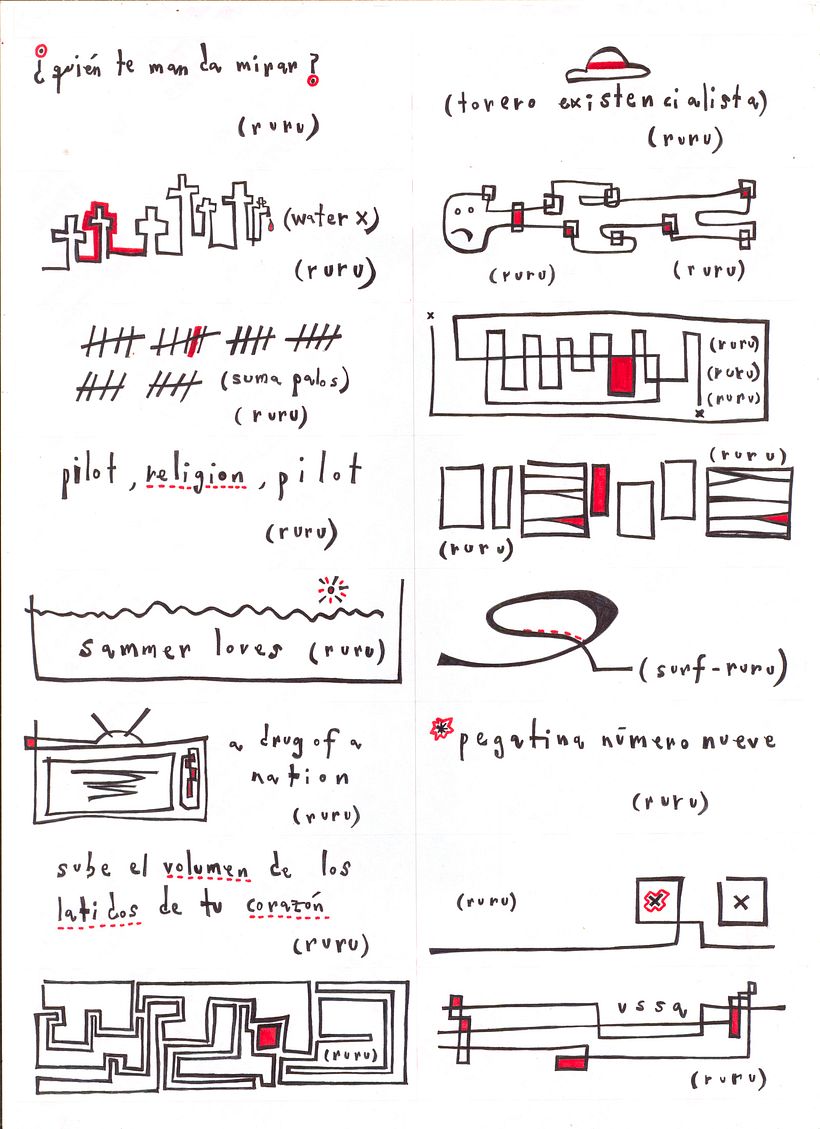 ¿quién te manda mirar?
(ruru)
(water x)
(ruru)
(suma palos)
(ruru)
pilot, religion, pilot
(ruru)
sammer loves (ruru)
a drug of a
nation
(ruru)
sube el volumen de los
latidos de tu corazón
(ruru)
(ruru)
(torero existencialista)
(ruru)
(ruru) (ruru)
x
(ruru)
(ruru)
(ruru)
x
(ruru)
(ruru)
(surf-ruru)
pegatina número nueve
(ruru)
(ruru) x x
(ruru)